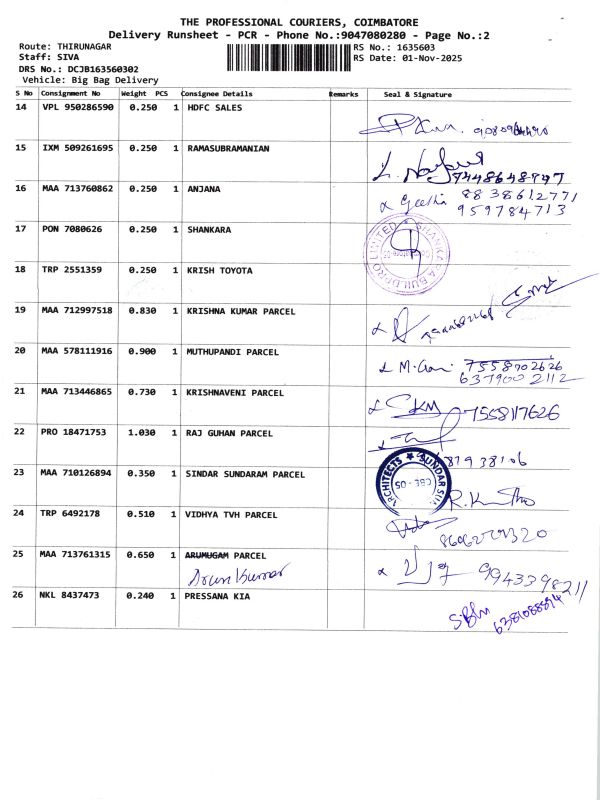 THE PROFESSIONAL COURIERS, COIMBATORE
Delivery Runsheet - PCR - Phone No.:9047080280 - Page No.:2
Route: THIRUNAGAR RS No.: 1635603
Staff: SIVA RS Date: 01-Nov-2025
DRS No.: DCJB163560302
Vehicle: Big Bag Delivery
S No Consignment No Weight PCS Consignee Details Remarks Seal & Signature
14 VPL 950286590 0.250 1 HDFC SALES
15 IXM 509261695 0.250 1 RAMASUBRAMANIAN
7448648947
16 MAA 713760862 0.250 1 ANJANA
Geetha 8838612771
959784713
17 PON 7080626 0.250 1 SHANKARA
SHANKARA BUILDPRO LIMITED
18 TRP 2551359 0.250 1 KRISH TOYOTA
19 MAA 712997518 0.830 1 KRISHNA KUMAR PARCEL
20 MAA 578111916 0.900 1 MUTHUPANDI PARCEL
7558702626
6379002112
21 MAA 713446865 0.730 1 KRISHNAVENI PARCEL
SKM 7558117626
22 PRO 18471753 1.030 1 RAJ GUHAN PARCEL
23 MAA 710126894 0.350 1 SINDAR SUNDARAM PARCEL
ARCHITECTS ★ SUNDAR
CBE - 05
24 TRP 6492178 0.510 1 VIDHYA TVH PARCEL
25 MAA 713761315 0.650 1 ARUMUGAM PARCEL
Arun Kumar
9943398211
26 NKL 8437473 0.240 1 PRESSANA KIA
6381088894